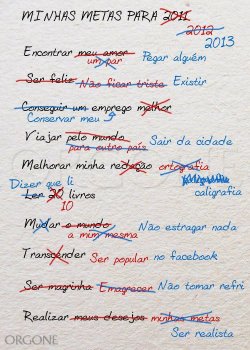 MINHAS METAS PARA 2011
2012
2013
Encontrar meu amor
um par Pegar alguém
Ser feliz Não ficar triste Existir
Conseguir um emprego melhor
Conservar meu
Viajar pelo mundo
para outro país Sair da cidade
Melhorar minha redação ortografia
caligrafia
Dizer que li
Ler 20 livros
10
Mudar o mundo
a mim mesma Não estragar nada
Transcender Ser popular no facebook
Ser magrinha Emagrecer Não tomar refri
Realizar meus desejos minhas metas
Ser realista
ORGONE